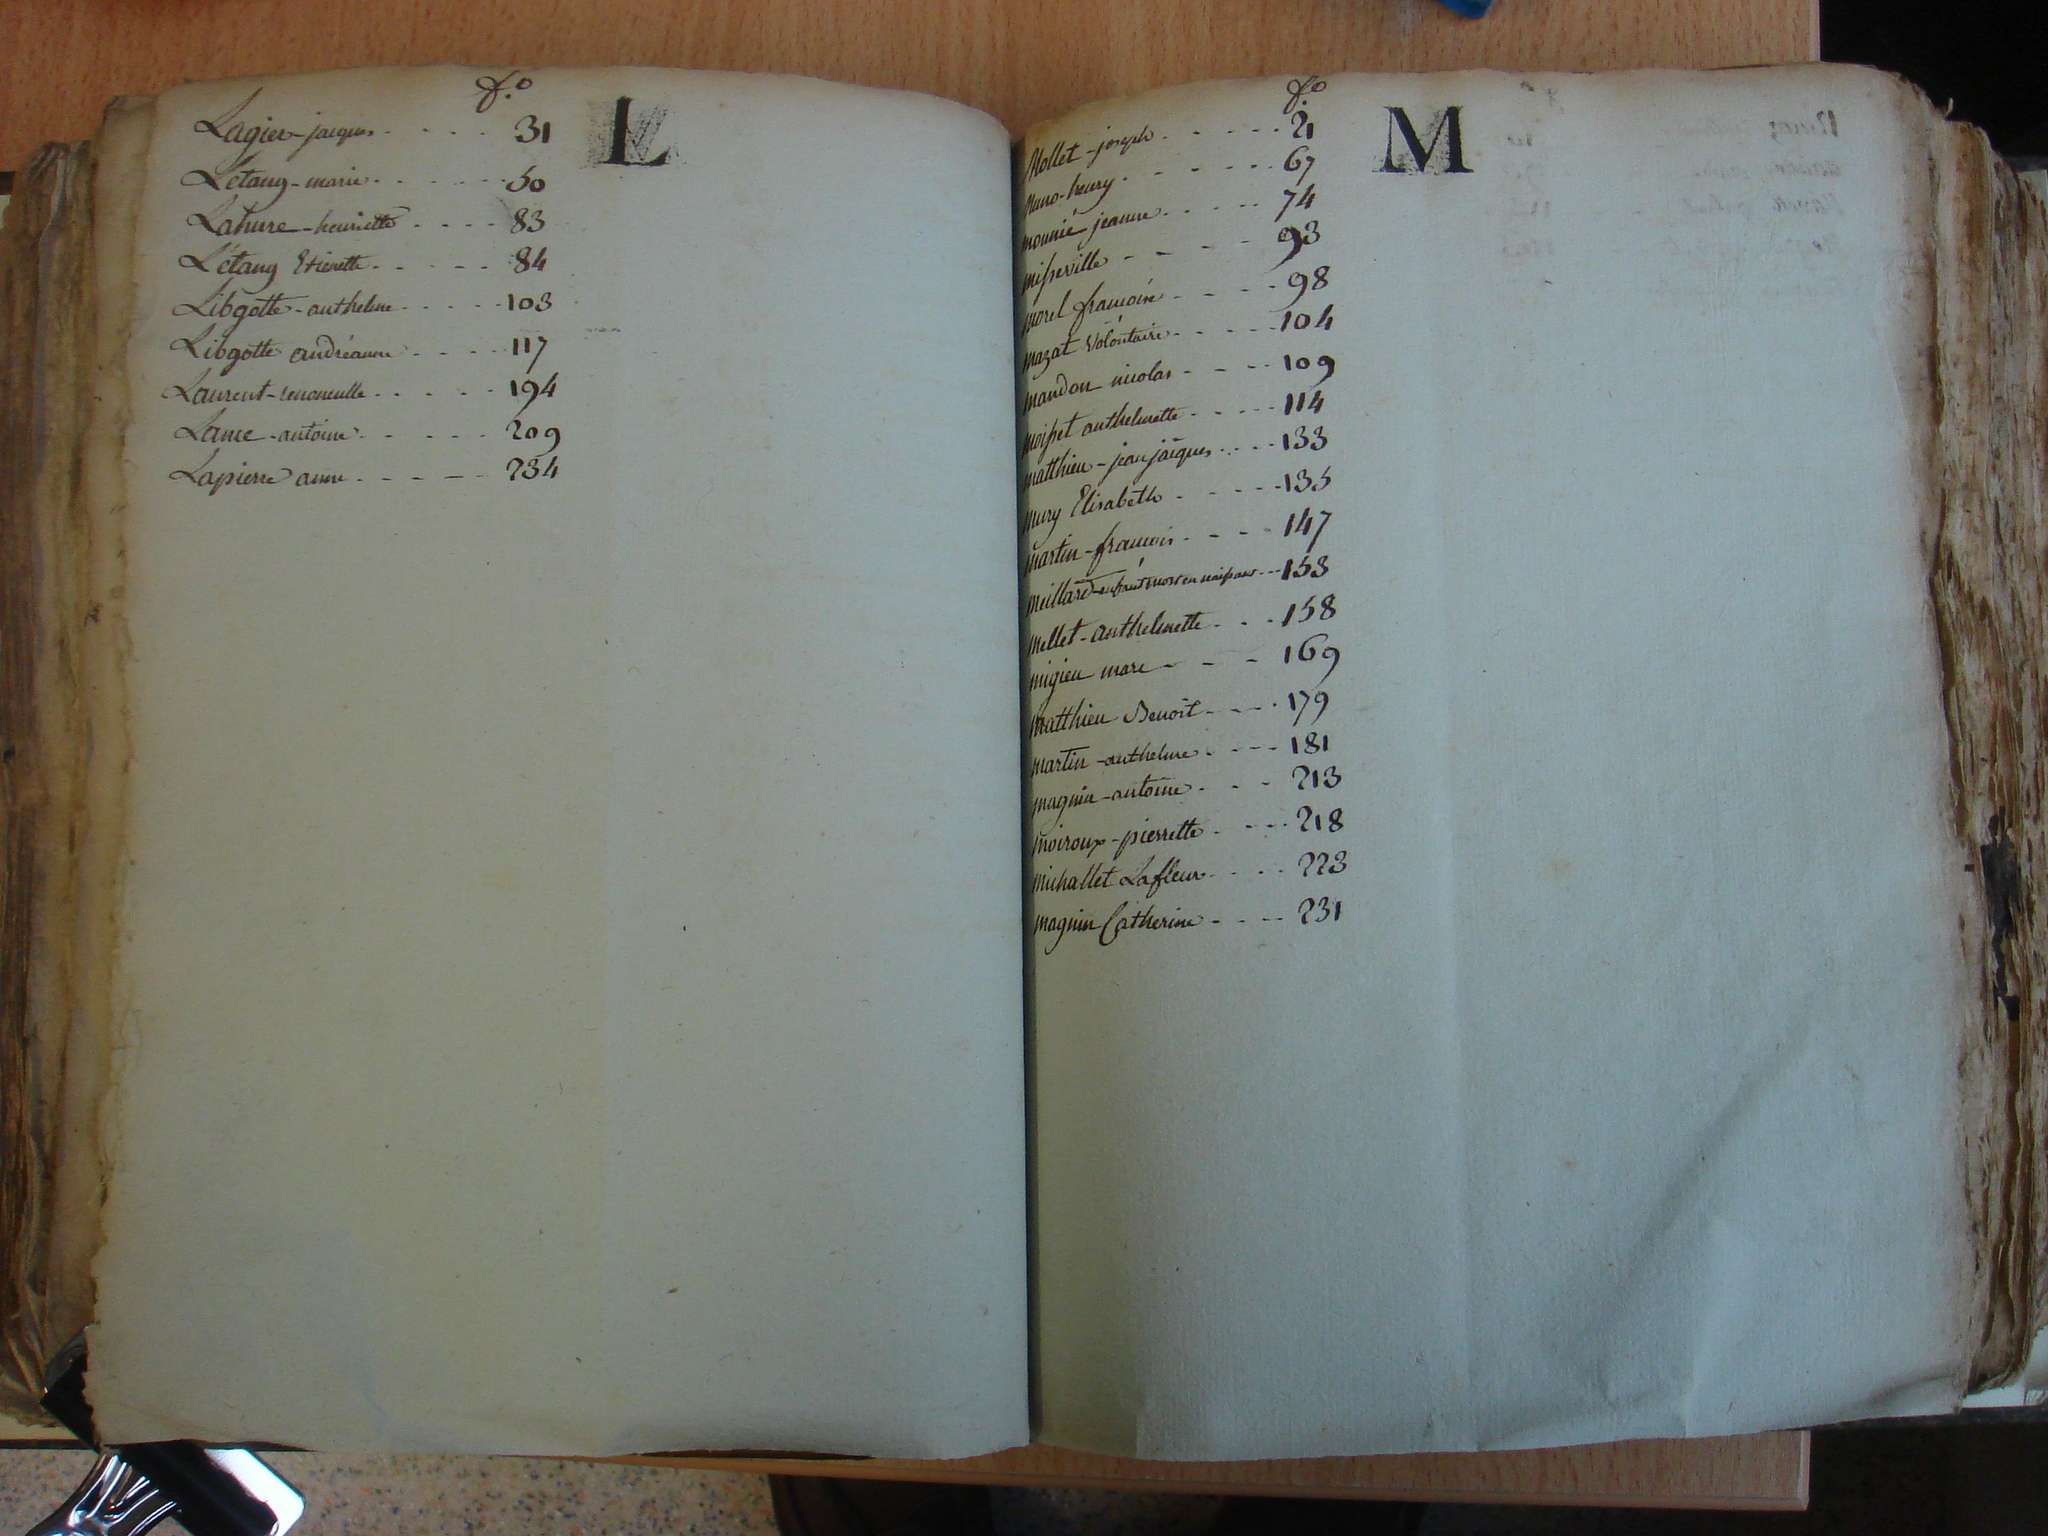 f.o
L
Lagier - jacques - - - - 31
Létang - marie - - - - - 50
Lahure - henriette - - - - 83
Létang Etienette - - - - - 84
Libgotte - anthelme - - - - 103
Libgotte andréanne - - - - 117
Laurent - - - - - 194
Lance - antoine - - - - - 209
Lapierre anne - - - - - 234
f.o
M
Mollet - joseph - - - - - 21
henry - - - - - 67
mounié jeanne - - - - 74
misseville - - - - 93
morel francoise - - - - 98
mazat Volontaire - - - - 104
mandon nicolas - - - - 109
moisset anthelmette - - - - 114
matthieu - jean jaiques - - - - 133
mury Elisabeth - - - - - 135
martin - francois - - - - 147
meillard - enfant mort en naissant - - - 153
mellet - anthelmette - - - 158
migieu marc - - - 169
matthieu Benoit - - - - 179
martin - anthelme - - - - 181
magnin - antoine - - - 213
moiroux - pierrette - - - - 218
michallet Lafleur - - - - 223
magnin Catherine - - - - 231